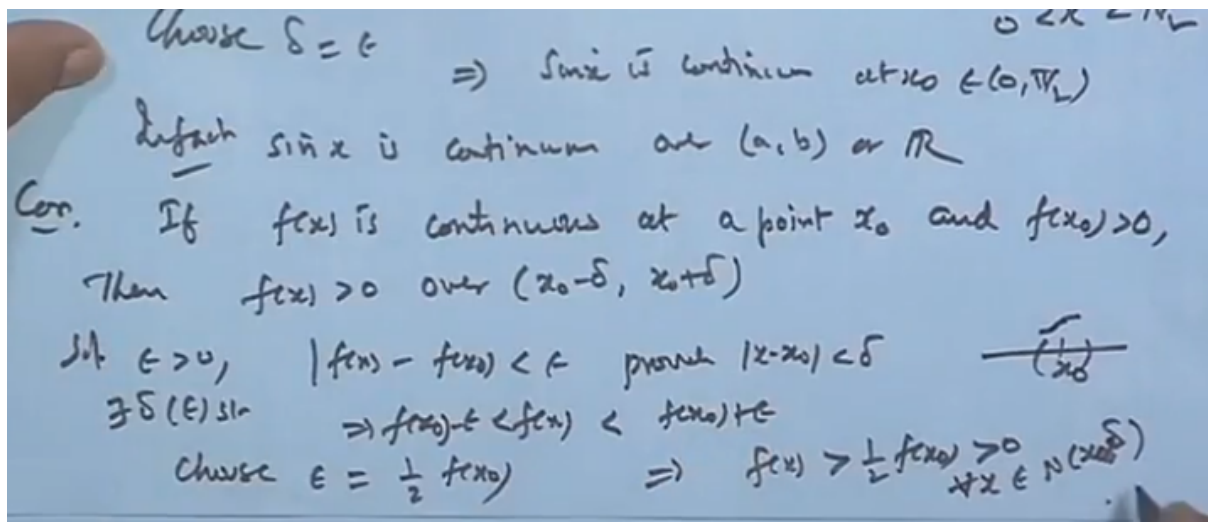 0 < x < π/2
Choose δ = ε
⇒ Sinx is continuous at x0 ∈ (0, π/2)
Infact sin x is continuous over (a, b) or ℝ
Cor. If f(x) is continuous at a point x0 and f(x0) > 0,
Then f(x) > 0 over (x0-δ, x0+δ)
ε > 0, |f(x) - f(x0)| < ε |x-x0| < δ
∃ δ(ε) s.t. ⇒ f(x0)-ε < f(x) < f(x0)+ε
(x0)
Choose ε = 1/2 f(x0) ⇒ f(x) > 1/2 f(x0) > 0
∀x ∈ N(x0, δ)